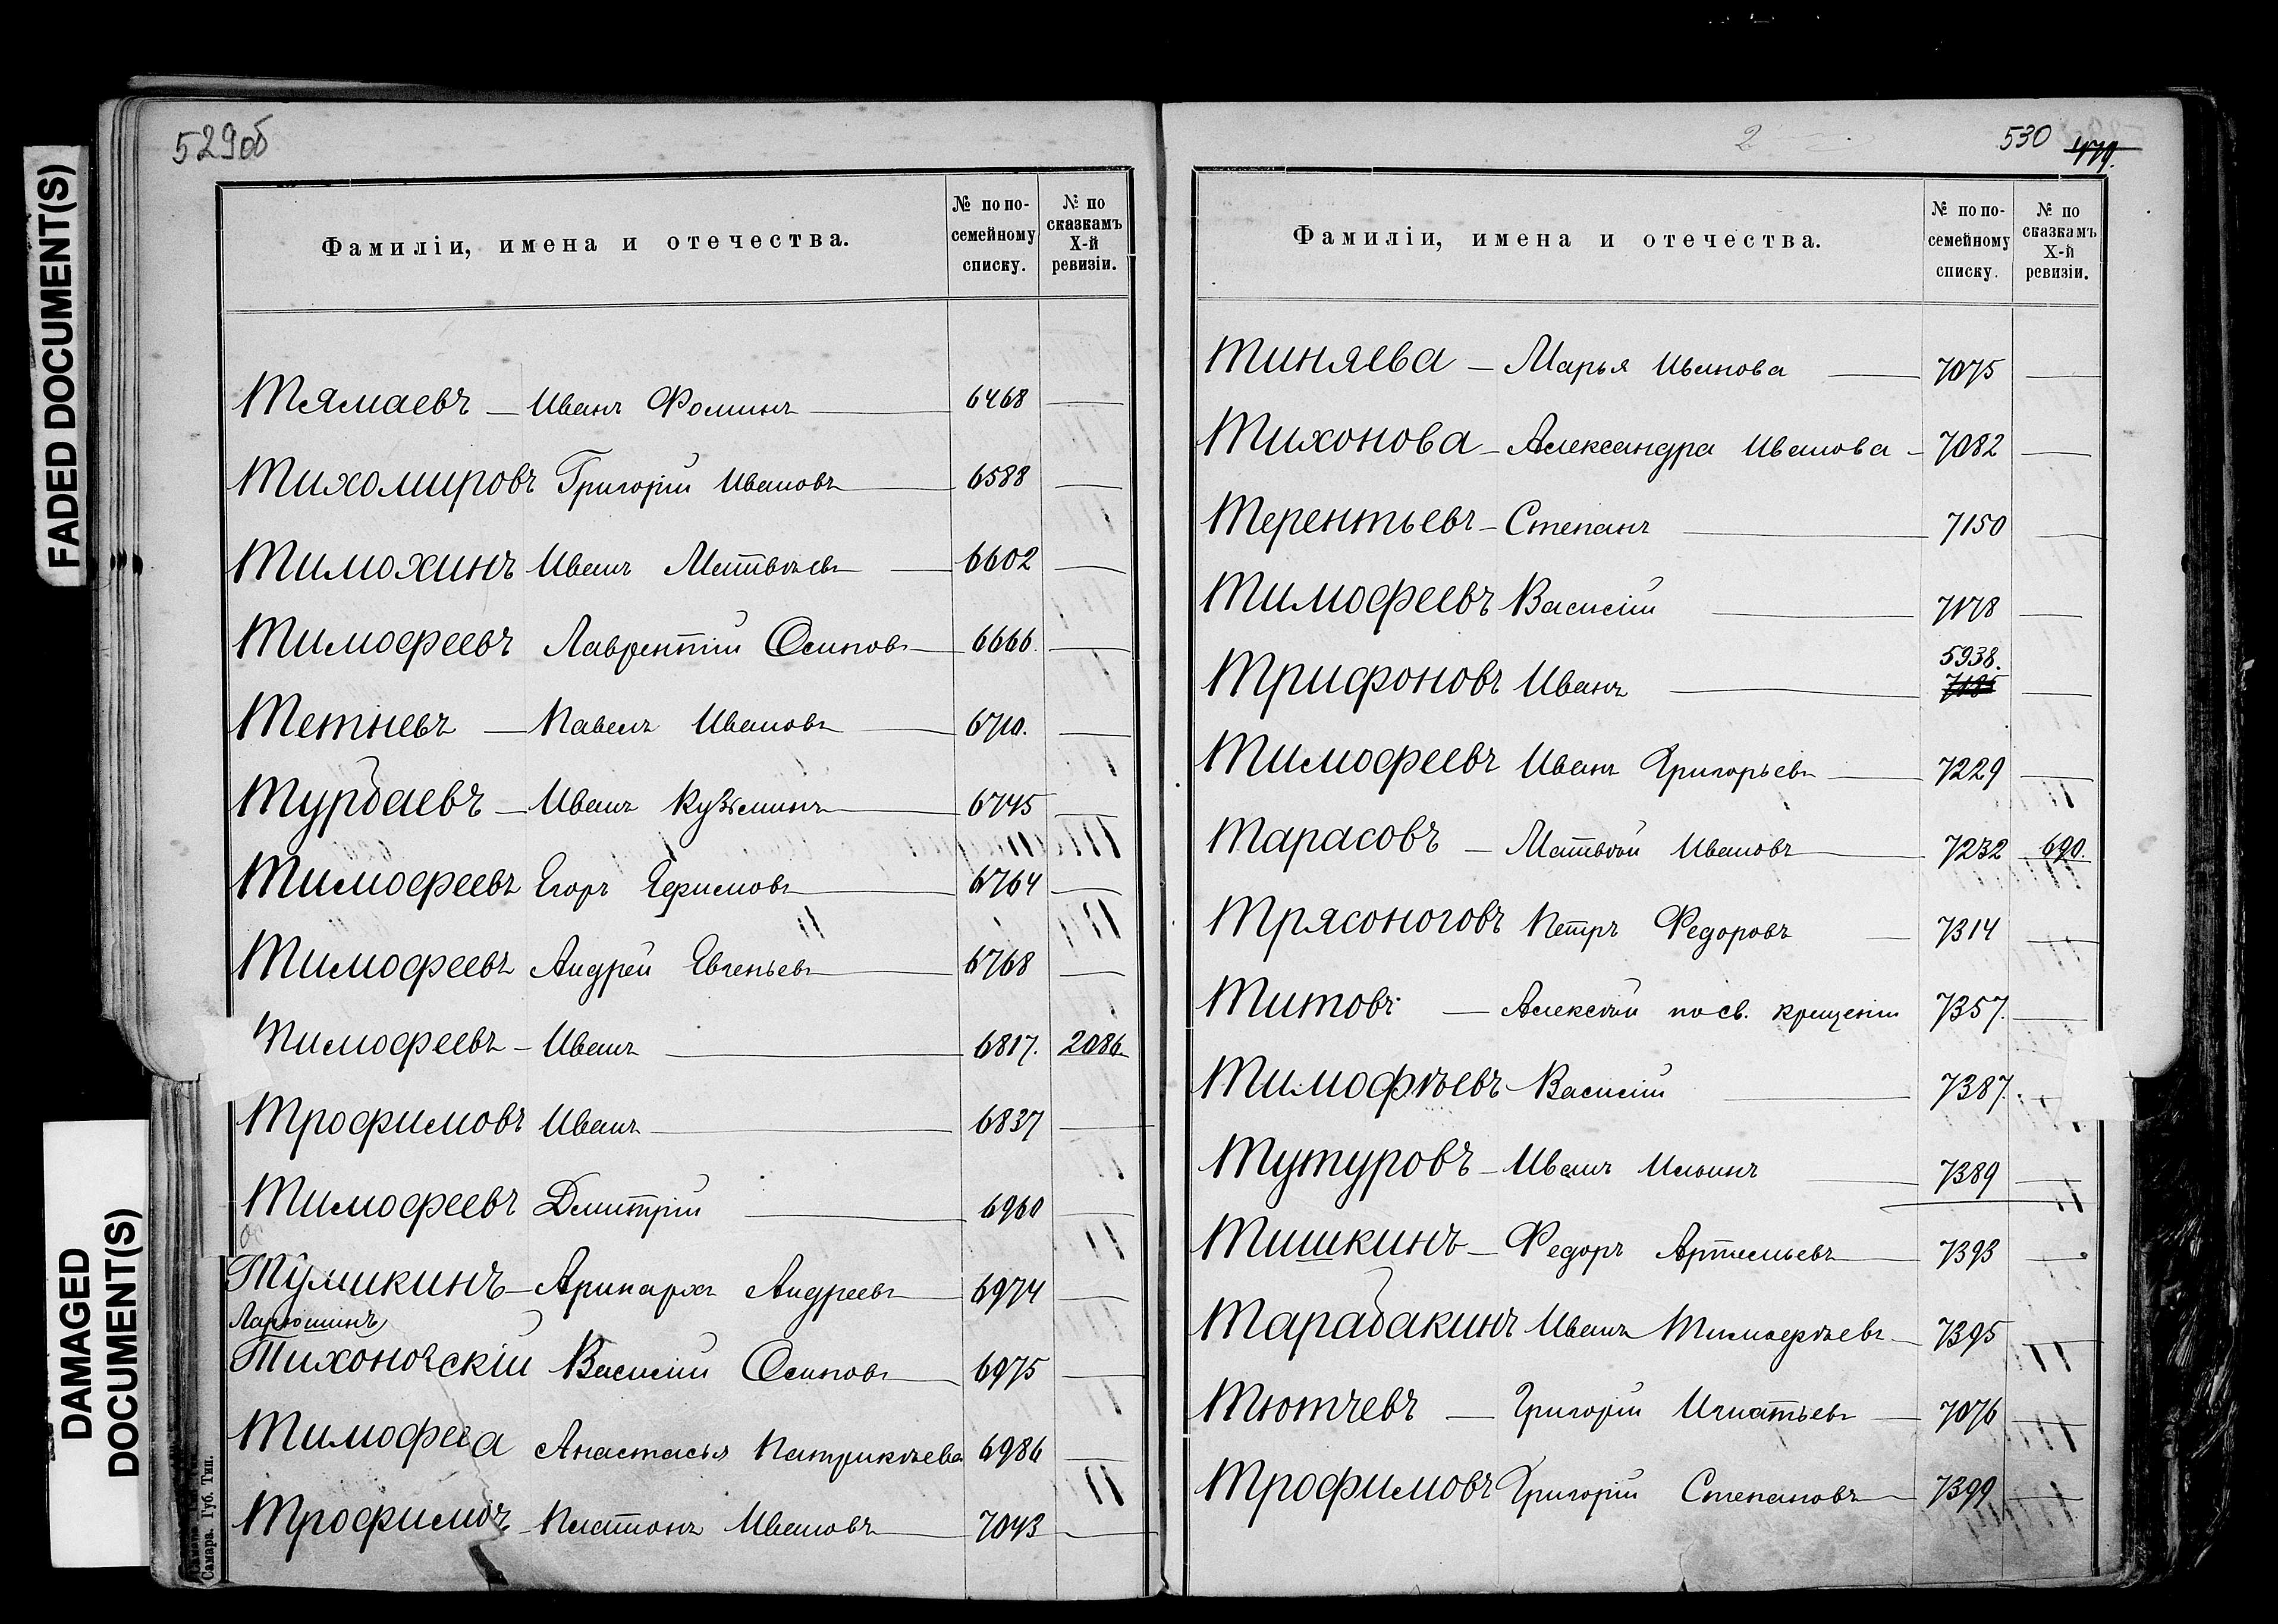 FADED DOCUMENT(S)
DAMAGED DOCUMENT(S)
529об
Фамиліи, имена и отечества.
№ по по-
семейному
списку.
№ по
сказкамъ
X-й
ревизіи.
Тямаевъ — Иванъ Фоминъ — 6468 —
Тихомировъ Григорій Ивановъ — 6588 —
Тимохинъ Иванъ Матвѣевъ — 6602 —
Тимофеевъ Лаврентій Осиповъ — 6666. —
Тетневъ — Павелъ Ивановъ — 6710. —
Турбаевъ — Иванъ Кузьминъ — 6745 —
Тимофеевъ Егоръ Ефимовъ — 6764 —
Тимофеевъ Андрей Евгеньевъ — 6768 —
Тимофеевъ — Иванъ — 6817. 2086
Трофимовъ Иванъ — 6837 —
Тимофеевъ Дмитрій — 6960 —
Тумикинъ — Арипархъ Андреевъ — 6974 —
Ларюшинъ
Тихоновскій Василій Осиповъ — 6975 —
Тимофеева Анастасья Патрикѣева 6986 —
Трофимовъ Платонъ Ивановъ — 7043 —
Самара. Губ. Тип.
2
530
479.
Фамиліи, имена и отечества.
№ по по-
семейному
списку.
№ по
сказкамъ
X-й
ревизіи.
Тиняева — Марья Иванова — 7075 —
Тихонова — Александра Иванова — 7082 —
Терентьевъ — Степанъ — 7150 —
Тимофеевъ Василій — 7178 —
5938.
Трифоновъ Иванъ — 7185 —
Тимофеевъ Иванъ Григорьевъ — 7229 —
Тарасовъ — Матвѣй Ивановъ — 7232 690.
Трясоноговъ Петръ Федоровъ — 7314 —
Титовъ — Алексѣй по св. крещенію 7357. —
Тимофѣевъ Василій — 7387. —
Тутуровъ — Иванъ Ильинъ — 7389 —
Тишкинъ — Федоръ Артемьевъ — 7393 —
Тарабакинъ Иванъ Тимофѣевъ — 7395 —
Тютчевъ — Григорій Игнатьевъ — 7076 —
Трофимовъ Григорій Степановъ — 7399 —